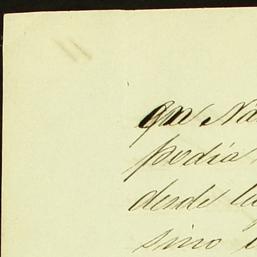 que Na
podia
desde la
sino